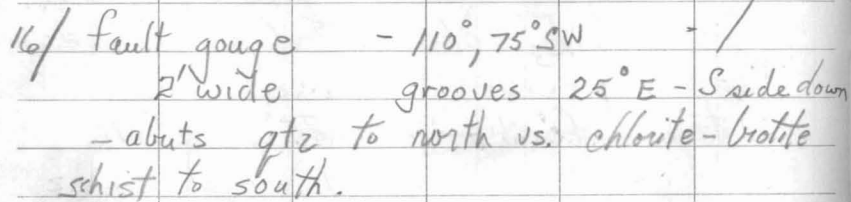 16/ fault gouge - 110°, 75°SW - /
2' wide grooves 25°E - S side down
- abuts qtz to north vs. chlorite - biotite
schist to south.